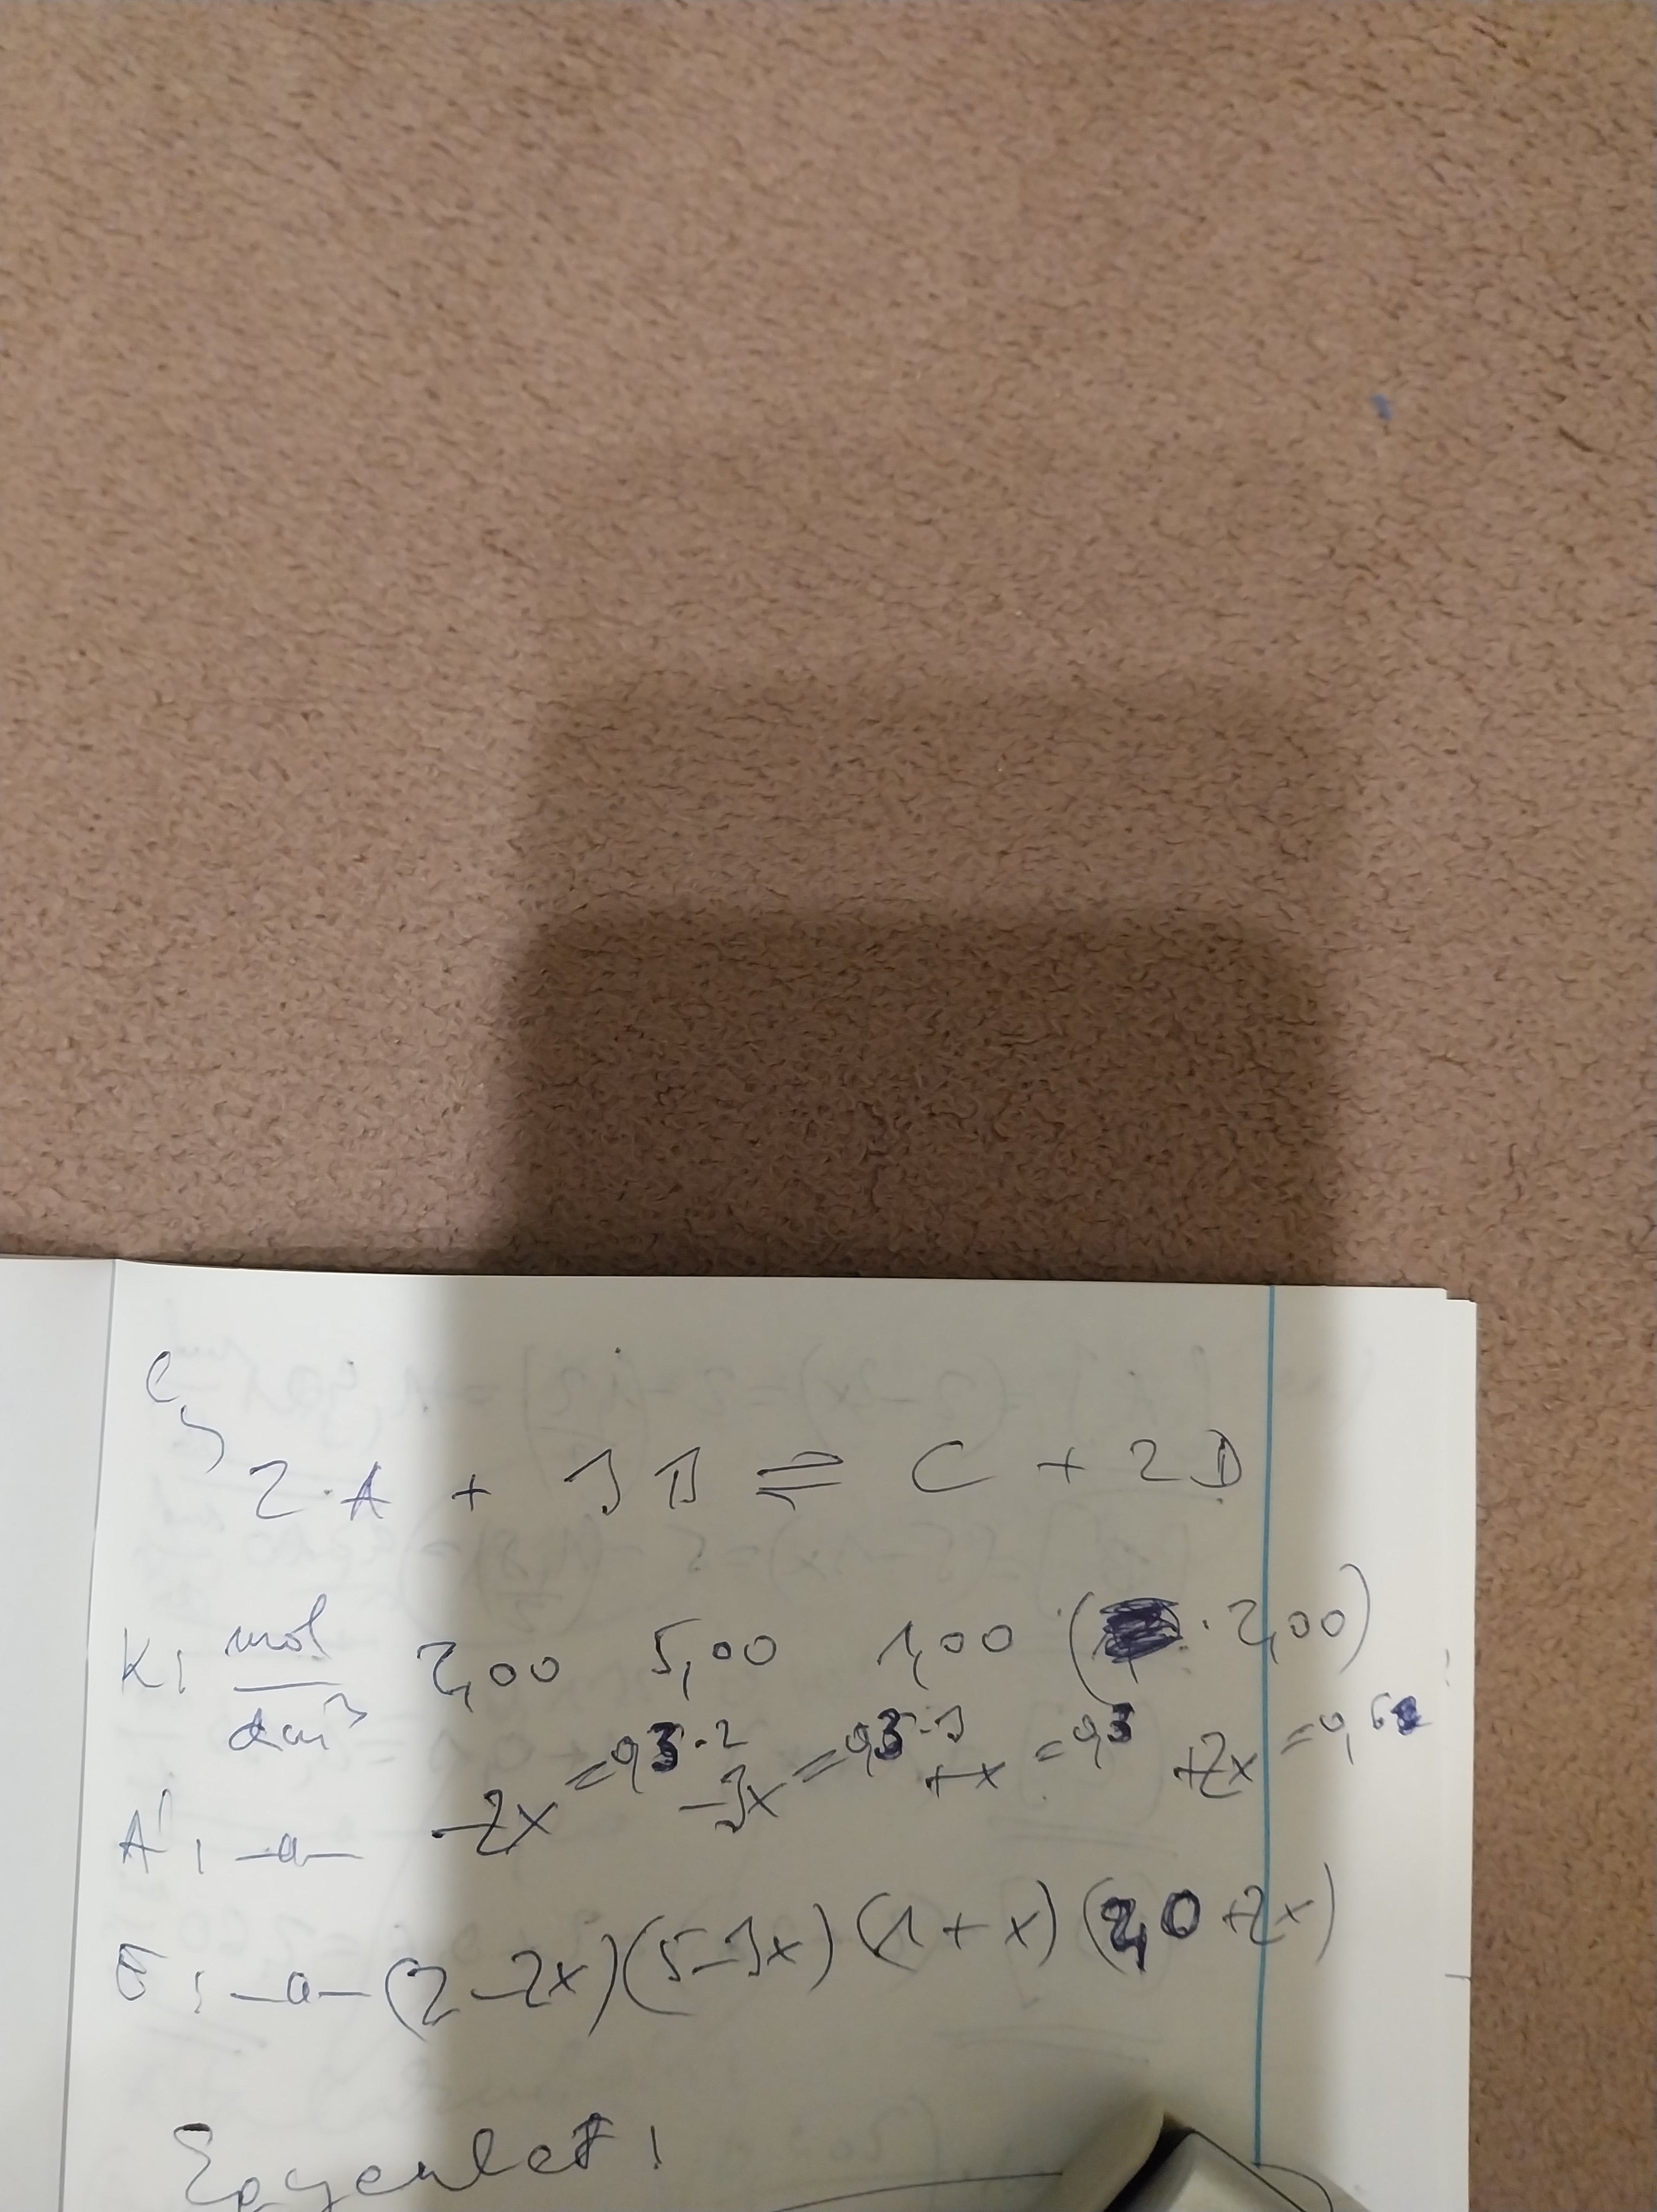 C,
2A + 3B ⇌ C + 2D
K: mol/dm³ 2,00 5,00 1,00 (2,00)
Á: -"- -2x = 0,3·2 -3x = 0,3·3 +x = 0,3 +2x = 0,6
E: -"- (2-2x) (5-3x) (1+x) (2,0+2x)
Egyenlet: